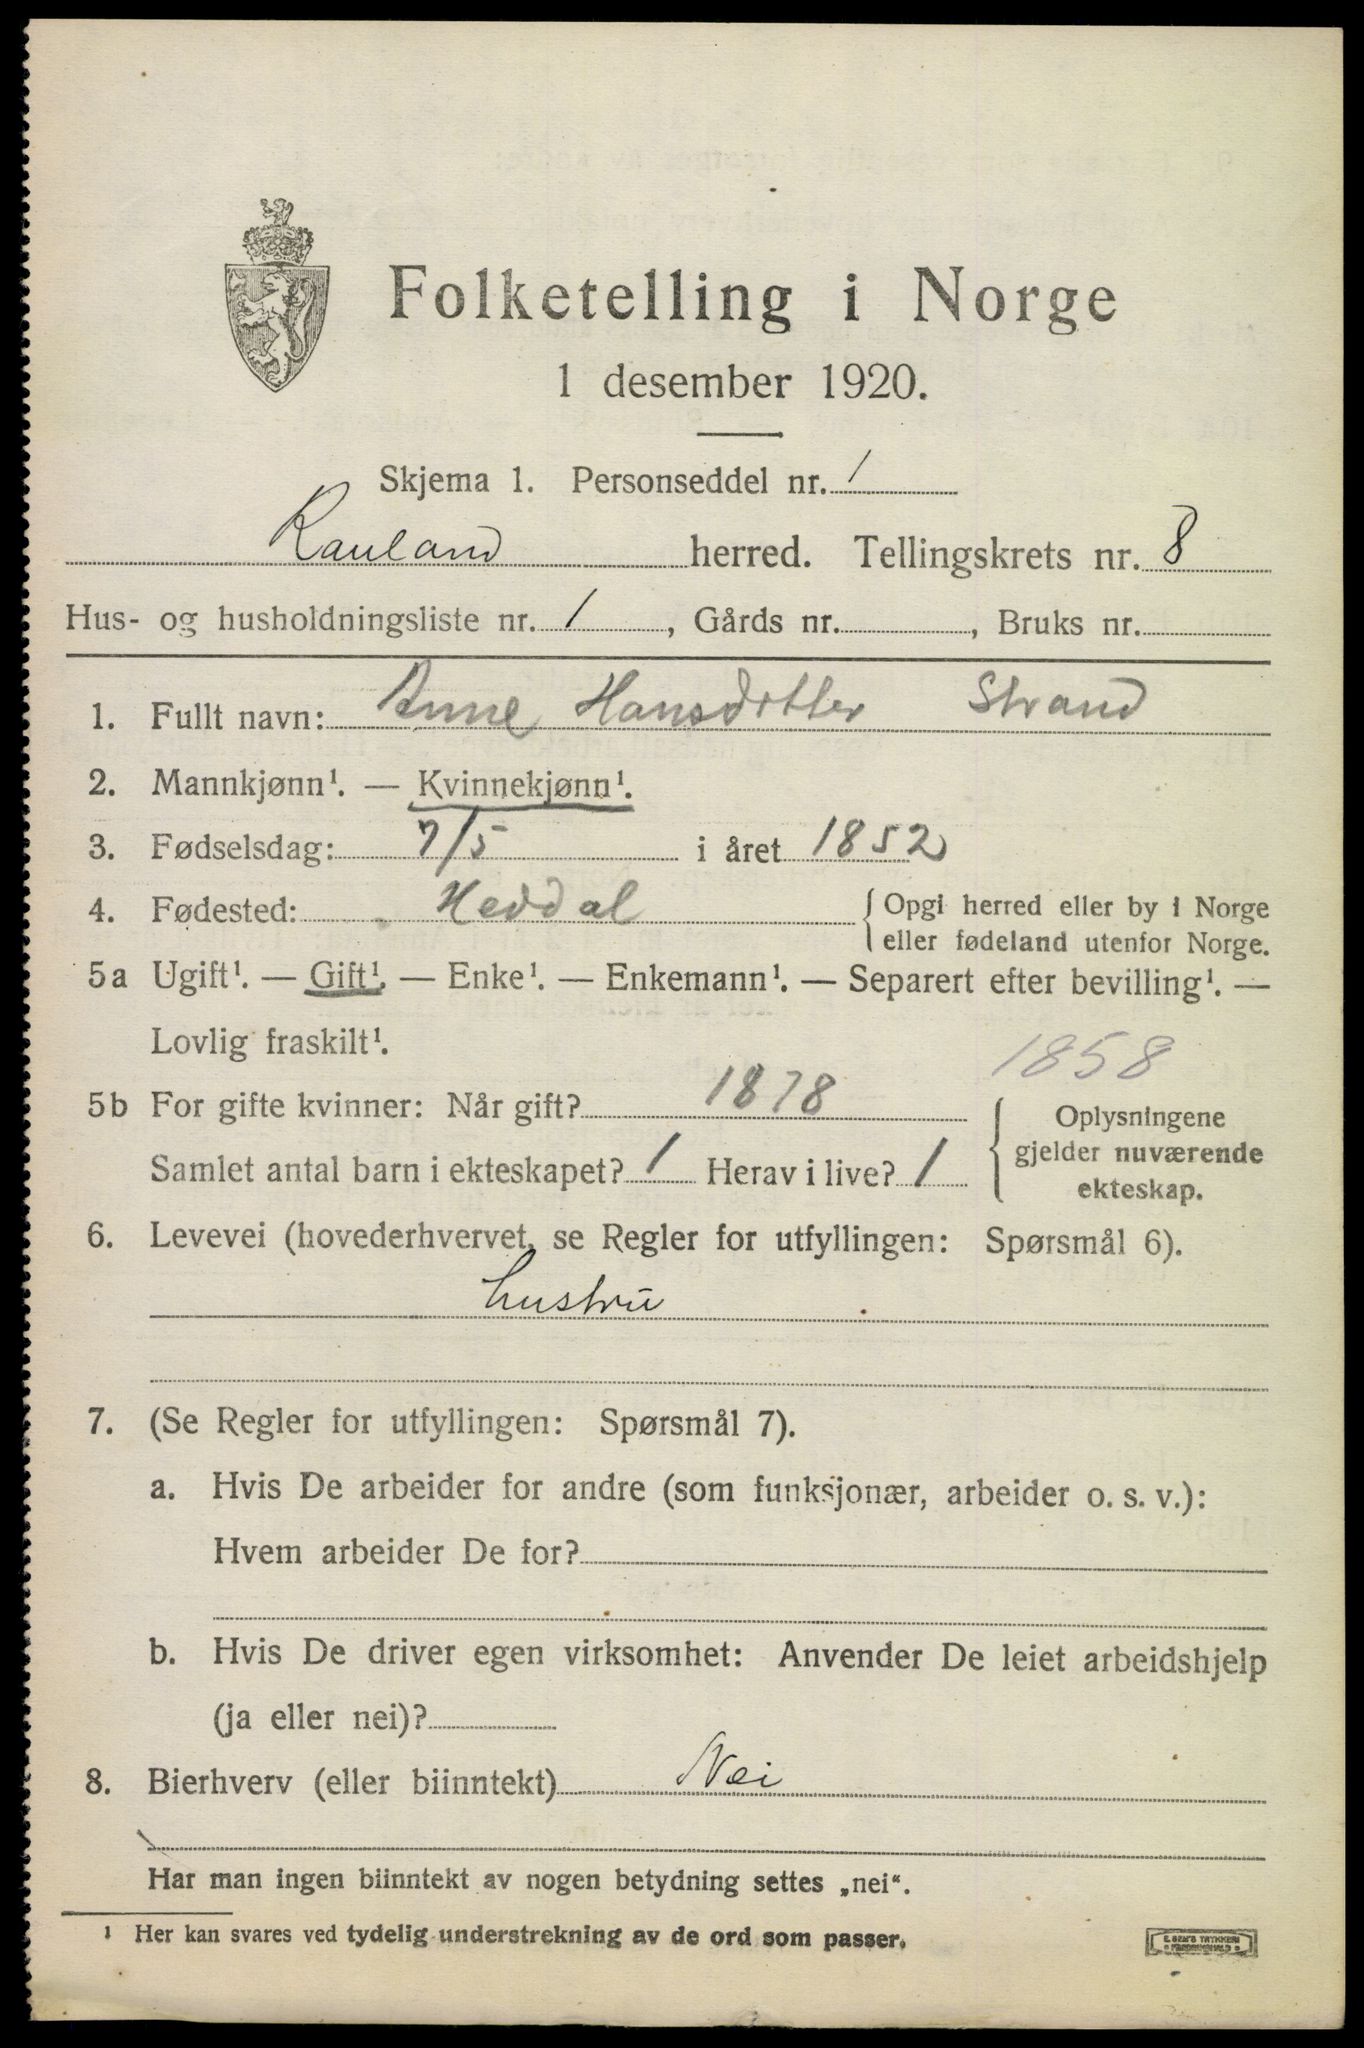 Folketelling i Norge
1 desember 1920.
Skjema 1. Personseddel nr. 1
Rauland herred. Tellingskrets nr. 8
Hus- og husholdningsliste nr. 1, Gårds nr. , Bruks nr.
1. Fullt navn: Anne Hansdotter Strand
2. Mannkjønn¹. — Kvinnekjønn¹.
3. Fødselsdag: 7/5 i året 1852
4. Fødested: Heddal { Opgi herred eller by i Norge
eller fødeland utenfor Norge.
5a Ugift¹. — Gift¹. — Enke¹. — Enkemann¹. — Separert efter bevilling¹. —
Lovlig fraskilt¹.
1858
5b For gifte kvinner: Når gift? 1878
Samlet antal barn i ekteskapet? 1 Herav i live? 1
{ Oplysningene
gjelder nuværende
ekteskap.
6. Levevei (hovederhvervet, se Regler for utfyllingen: Spørsmål 6).
hustru
7. (Se Regler for utfyllingen: Spørsmål 7).
a. Hvis De arbeider for andre (som funksjonær, arbeider o. s. v.):
Hvem arbeider De for?
b. Hvis De driver egen virksomhet: Anvender De leiet arbeidshjelp
(ja eller nei)?
8. Bierhverv (eller biinntekt) Nei
Har man ingen biinntekt av nogen betydning settes „nei“.
¹ Her kan svares ved tydelig understrekning av de ord som passer.